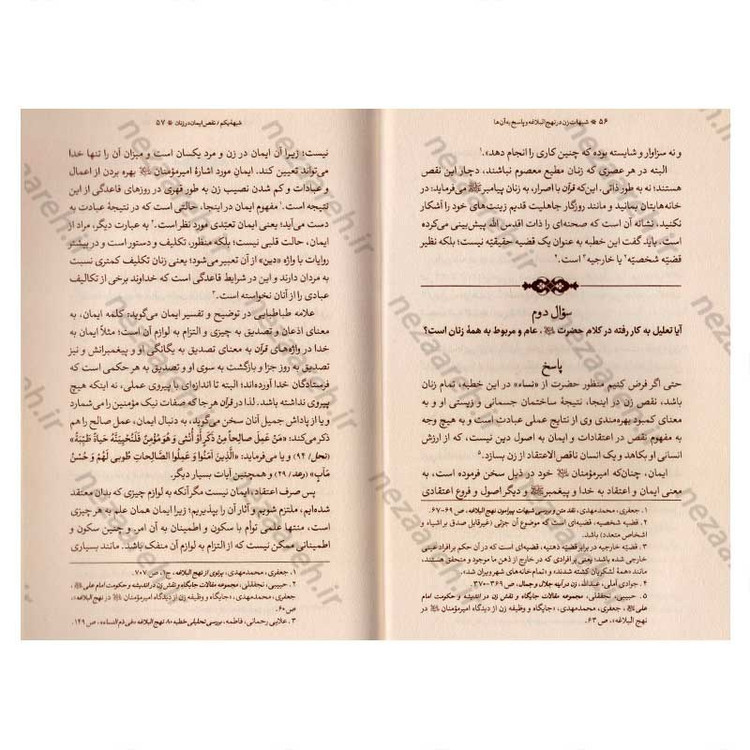 ۵۶ * شبهات زن در نهج البلاغه و پاسخ به آن ها
و نه سزاوار و شایسته بوده که چنین کاری را انجام دهد».۱
البته در هر عصری که زنان مطیع معصوم نباشند، دچار این نقص
هستند؛ نه به طور ذاتی. این‌که قرآن با اصرار، به زنان پیامبر ﷺ می‌فرماید: در
خانه‌هایتان بمانید و مانند روزگار جاهلیت قدیم زینت‌های خود را آشکار
نکنید، نشانه آن است که صحنه‌ای را ذات اقدس الله پیش‌بینی می‌کرده
است. باید گفت این خطبه به عنوان یک قضیه حقیقیّه نیست؛ بلکه نظیر
قضیّه شخصیّه۲ یا خارجیه۳ است.۴
سؤال دوم
آیا تعلیل به کار رفته در کلام حضرت، عام و مربوط به همهٔ زنان است؟
پاسخ
حتی اگر فرض کنیم منظور حضرت از «نساء» در این خطبه، تمام زنان
باشد، نقص زن در اینجا، نتیجهٔ ساختمان جسمانی و زیستی او و به
معنای کمبود بهره‌مندی وی از نتایج عملی عبادت است و به هیچ وجه
به مفهوم نقص در اعتقادات و ایمان به اصول دین نیست، که از ارزش
انسانی او بکاهد و یک انسان ناقص الاعتقاد از زن بسازد.۵
ایمان، چنان‌که امیرمؤمنان خود در ذیل سخن فرموده است، به
معنی ایمان و اعتقاد به خدا و پیغمبر ﷺ و دیگر اصول و فروع اعتقادی
۱. جعفری، محمدمهدی، نقد متن و بررسی شبهات پیرامون نهج البلاغه، ص ۶۹-۶۷.
۲. قضیه شخصیه، قضیه‌ای است که موضوع آن جزئی (غیرقابل صدق بر اشیاء و
اشخاص متعدد) باشد.
۳. قضیّه خارجیه در برابر قضیه ذهنیه، قضیه‌ای است که در آن حکم بر افراد عینی
مانند «همهٔ لشکریان کشته شدند» و «تمام خانه های شهر ویران شد».
۴. جوادی آملی، عبدالله، زن در آینه جلال و جمال، ص ۳۷۰-۳۶۹.
۵. حبیبی، نجفقلی، مجموعه مقالات جایگاه و نقش زن در اندیشه و حکومت امام
علی، جعفری، محمدمهدی، «جایگاه و وظیفه زن از دیدگاه امیرمؤمنان در
نهج البلاغه»، ص ۶۳.
شبههٔ یکم / نقص ایمان در زنان * ۵۷
نیست؛ زیرا آن ایمان در زن و مرد یکسان است و میزان آن را تنها خدا
می‌تواند تعیین کند. ایمانِ مورد اشارهٔ امیرمؤمنان بهره بردن از اعمال
و عبادات و کم شدن نصیب زن به طور قهری در روزهای قاعدگی از این
نتیجه است.۱ مفهوم ایمان در اینجا، حالتی است که در نتیجهٔ عبادت به
دست می‌آید؛ یعنی ایمان تعبّدی مورد نظر است.۲ به عبارت دیگر، مراد از
ایمان، حالت قلبی نیست؛ بلکه منظور، تکلیف و دستور است و در بیشتر
روایات با واژه «دین» از آن تعبیر می‌شود؛ یعنی زنان تکلیف کمتری نسبت
به مردان دارند و این در شرایط قاعدگی است که خداوند برخی از تکالیف
عبادی را از آنان نخواسته است.۳
علامه طباطبایی در توضیح و تفسیر ایمان می‌گوید: کلمه ایمان، به
معنای اذعان و تصدیق به چیزی و التزام به لوازم آن است؛ مثلاً ایمان به
خدا در واژه‌های قرآن به معنای تصدیق به یگانگی او و پیغمبرانش و نیز
تصدیق به روز جزا و بازگشت به سوی او و تصدیق به هر حکمی است که
فرستادگان خدا آورده‌اند؛ البته تا اندازه‌ای با پیروی عملی، نه اینکه هیچ
پیروی نداشته باشد. لذا در قرآن هر جا که صفات نیک مؤمنین را می‌شمارد
و یا از پاداش جمیل آنان سخن می‌گوید، به دنبال ایمان، عمل صالح را هم
ذکر می‌کند: «مَنْ عَمِلَ صَالِحاً مِنْ ذَكَرٍ أَوْ أُنْثَى وَ هُوَ مُؤْمِنٌ فَلَنُحْيِيَنَّهُ حَيَاةً طَيِّبَةً»
(نحل / ۹۴) و یا می‌فرماید: «الَّذِينَ آمَنُوا وَ عَمِلُوا الصَّالِحَاتِ طُوبَى لَهُمْ وَ حُسْنُ
مَآبٍ» (رعد / ۲۹) و همچنین آیات بسیار دیگر.
پس صرف اعتقاد، ایمان نیست مگر آنکه به لوازم چیزی که بدان معتقد
شده‌ایم، ملتزم شویم و آثار آن را بپذیریم؛ زیرا ایمان همان علم به هر چیزی
است، منتها علمی توأم با سکون و اطمینان به آن امر. و چنین سکون و
اطمینانی ممکن نیست که از التزام به لوازم آن منفک باشد. مانند بسیاری
۱. جعفری، محمدمهدی، پرتوی از نهج البلاغه، ج۱، ص ۷۰۷.
۲. حبیبی، نجفقلی، مجموعه مقالات جایگاه و نقش زن در اندیشه و حکومت امام علی،
جعفری، محمدمهدی، «جایگاه و وظیفه زن از دیدگاه امیرمؤمنان در نهج البلاغه»،
ص ۶۰.
۳. علایی رحمانی، فاطمه، بررسی تحلیلی خطبه ۸۰ نهج البلاغه «فی ذم النساء»، ص ۱۲۹.
nezaareh.ir